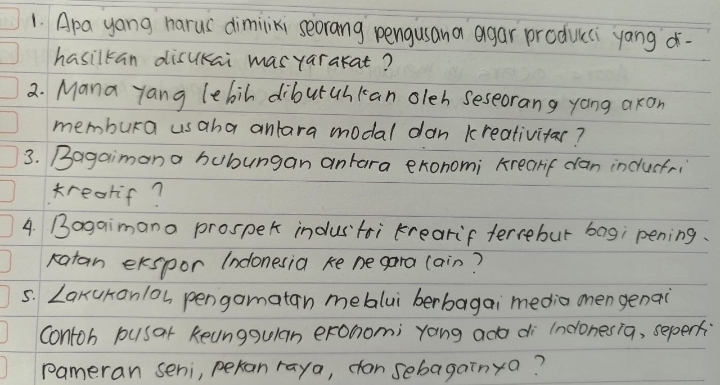 1. Apa yang harus dimiliki seorang pengusaha agar produksi yang di-
hasilkan disukai masyarakat?
2. Mana yang lebih dibutuhkan oleh seseorang yang akan
membuka usaha antara modal dan kreativitas?
3. Bagaimana hubungan antara ekonomi kreatif dan industri
kreatif?
4. Bagaimana prospek industri kreatif tersebut bagi pening-
katan ekspor Indonesia ke negara lain?
5. Lakukanlah pengamatan melalui berbagai media mengenai
contoh pusat keunggulan ekonomi yang ada di Indonesia, seperti
pameran seni, pekan raya, dan sebagainya?